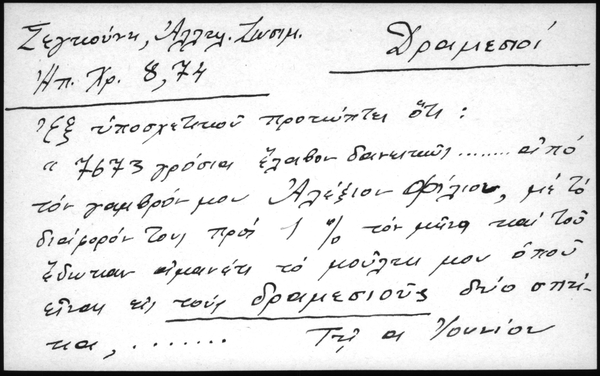 Σεγκούνη, Ἀλληλ. Ζωσιμ.
Δραμεσιοί
Ἠπ. Χρ. 8, 74
Ἐξ ὑποσχετικοῦ προκύπτει ὅτι :
« 7673 γρόσια ἔλαβον δανεικῶς ........ ἀπό
τόν γαμβρόν μου Ἀλέξιον Φίλιου, μέ τό
διάφορόν τους πρός 1 % τόν μῆνα καί τοῦ
ἔδωκαν ἀμανέτι τό μούλκι μου ὁποῦ
εἶναι εἰς τούς δραμεσιούς δύο σπί-
τια, ........ Τῇ α Ἰουνίου